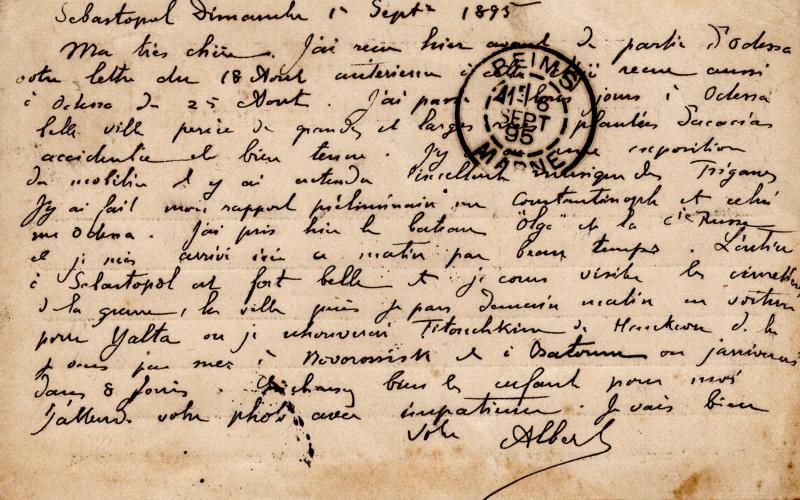 Sebastopol Dimanche 1r Septre 1895
Ma très chère. J'ai reçu hier avant de partir d'Odessa
votre lettre du 18 Aout antérieure à celle reçue aussi
à Odessa du 25 Aout. J'ai passé trois jours à Odessa
belle ville percée de grandes et larges rues plantées d'acacias
et bien tenue. J'y ai une exposition
du mobilier et y ai entendu l'excellente musique des Tziganes
J'y ai fait mon rapport préliminaire sur Constantinople et celui
sur Odessa. J'ai pris hier le bateau "Olga" de la Cie Russe
et je suis arrivé ici ce matin par beau temps. L'entrée
à Sebastopol est fort belle et je cours visiter les cimetières
de la guerre, la ville puis je pars demain matin en voiture
pour Yalta ou je retrouverai de
par mer à Novorossisk et à Batoum ou j'arriverai
dans 8 jours. bien les enfants pour moi
J'attends votre photo avec impatience. Je vais bien
Votre Albert
REIMS
6
SEPT
95
MARNE